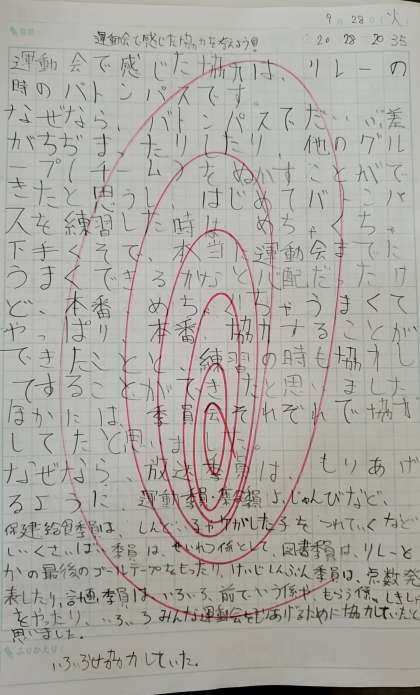 9 28 (火)
運動会で感じた協力を考えよう!!
20 28 20 35
運動会で感じた協力は、リレーの
時のバトンパスです。
なぜなら、バトンパスでだいぶ差
がちぢまったりしたり、他のグル
ープ(チーム)をぬかすことがで
きたと思うし、はじめてバトンパ
スを練習した時は、めちゃくちゃ
下手くそで、本当に運動会までに
うまくできるかなと心配だったけ
ど、本番、めちゃくちゃうまくて
やっぱり、本番、協力することが
できたことと、練習の時も協力し
てすることができたと思いました。
ほかには、委員会それぞれで協力
してたと思いました。
なぜなら、放送委員は、もりあげ
るように、運動委員は、じゅんびなど、
保建給食委員は、しんどい子やケガした子をつれていくなど
しいくさいばい委員は、せいれつ係として、図書委員は、リレーと
かの最後のゴールテープをもったり、けいじしんぶん委員は、点数発
表したり、計画委員は、いろいろ、前でいう係や、もらう係、しきしゃ
をやったり、いろいろみんな運動会をもりあげるために協力していたと
思いました。
いろいろな協力していた。